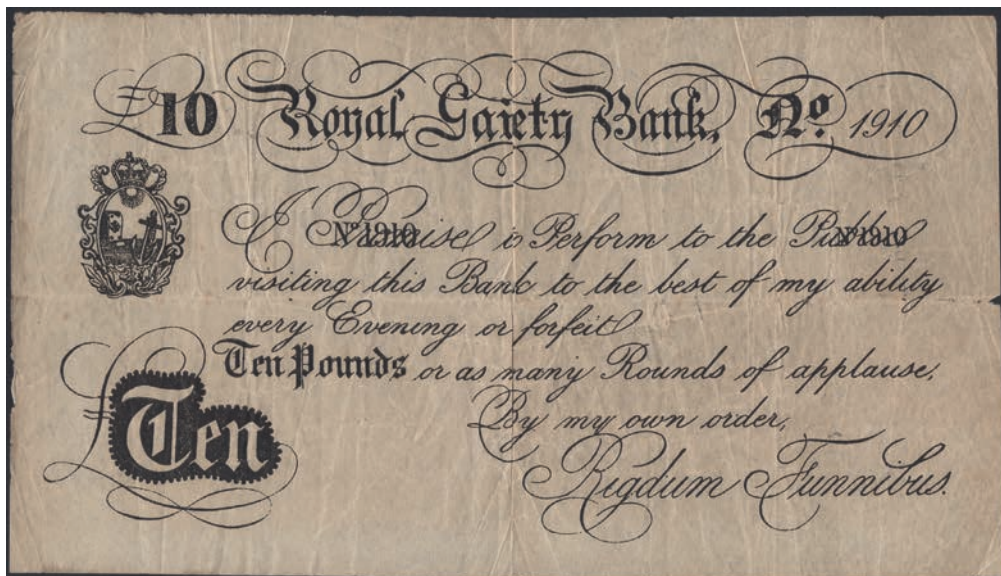 £10 Royal Gaiety Bank, No. 1910
I Promise to Perform to the Public
No 1910 No 1910
visiting this Bank to the best of my ability
every Evening or forfeit
Ten Pounds or as many Rounds of applause.
By my own order,
£Ten
Rigdum Funnibus.